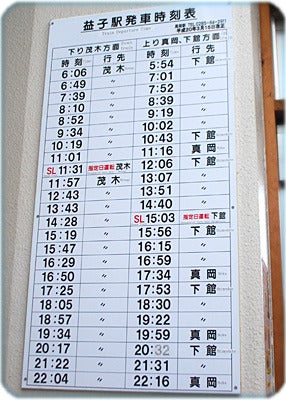 益子駅発車時刻表
Train Departure Time
真岡駅 TEL 0285-84-2911
平成20年3月15日改正
下り茂木方面 上り真岡、下館方面
時刻 行先 時刻 行先
6:06 茂木 5:54 下館
6:49 〃 7:01 〃
7:39 〃 7:52 〃
8:10 〃 8:39 〃
8:52 〃 9:19 〃
9:34 〃 10:02 〃
10:19 〃 10:43 下館
11:01 〃 11:16 真岡
SL 11:31 指定日運転 茂木 12:06 下館
11:57 茂木 13:07 〃
12:43 〃 13:51 〃
13:43 〃 14:40 〃
14:28 〃 SL 15:03 指定日運転 下館
15:19 〃 15:56 下館
15:47 〃 16:15 〃
16:29 〃 16:59 〃
16:50 〃 17:34 真岡
17:25 〃 17:53 下館
18:05 〃 18:30 〃
18:57 〃 19:22 〃
19:34 〃 19:59 真岡
20:17 〃 20:32 下館
21:22 〃 21:31 〃
22:04 〃 22:16 真岡